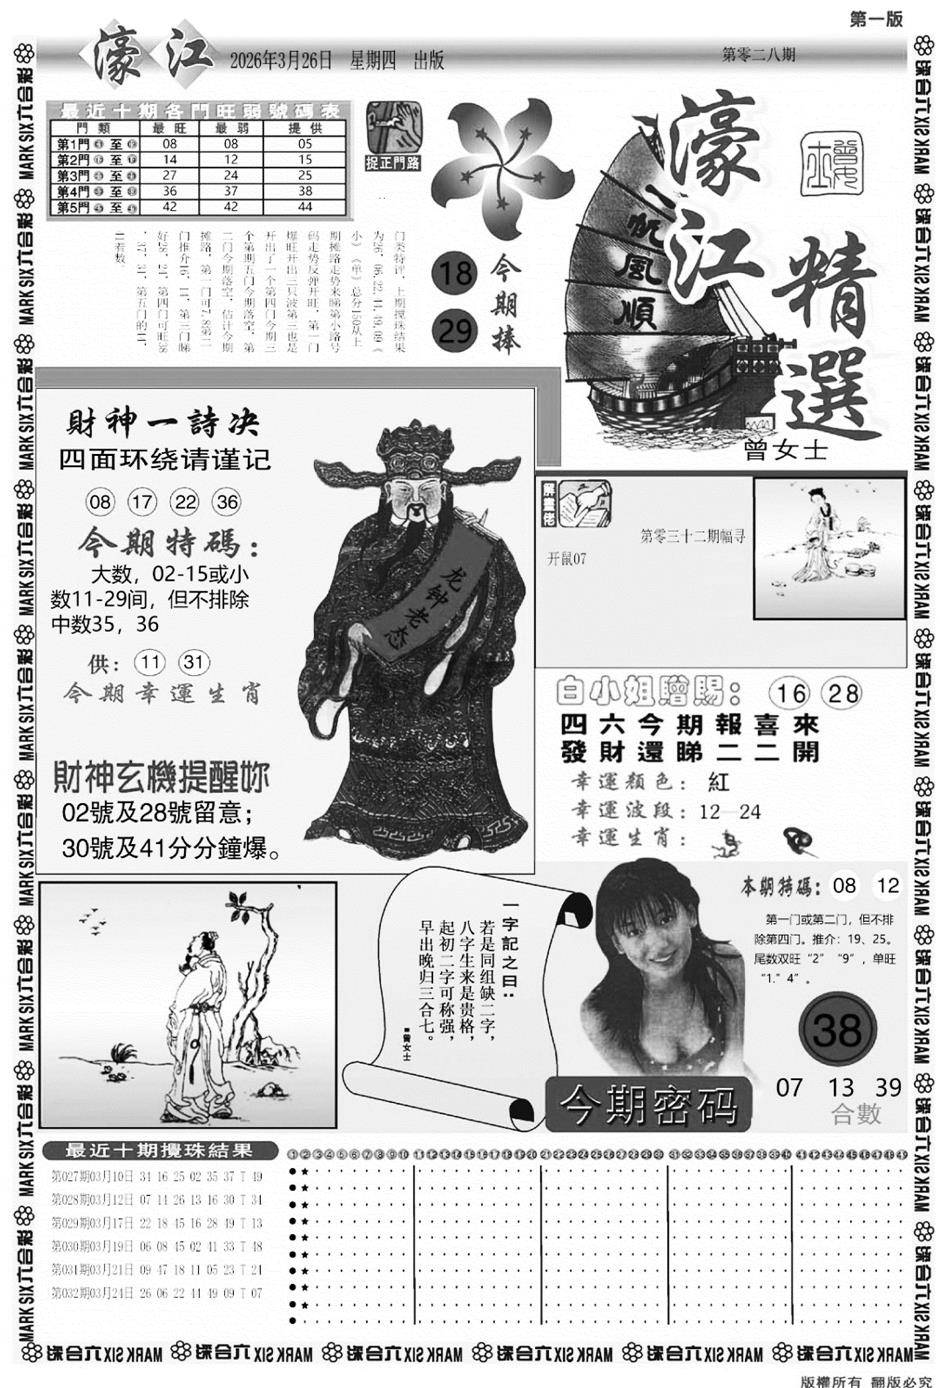 第一版
濠江 2026年3月26日 星期四 出版
第零二八期
最近十期各門旺弱號碼表
門類 最旺 最弱 提供
第1門 至 08 08 05
第2門 至 14 12 15
第3門 至 27 24 25
第4門 至 36 37 38
第5門 至 42 42 44
捉正門路
18 29
今期捧
濠江精選
一帆風順
曾女士
门类特评，上期搅珠结果
为26，06，22，44，49，09《
小》《单》总分160从上
期摊路走势来睇第小路号
码走势反弹开旺，第一门
爆旺开出三只波第三也是
开出了一个第四门今期三
个第期五门今期落空，第
二门今期落空，估计今期
財神一詩决
四面环绕请谨记
08 17 22 36
今期特碼：
大数，02-15或小
数11-29间，但不排除
中数35，36
供：11 31
今期幸運生肖
財神玄機提醒妳
02號及28號留意；
30號及41分分鐘爆。
龙钟老态
第零三十二期幅寻
开鼠07
白小姐贈賜：16 28
四六今期報喜來
發財還睇二二開
幸運顏色：紅
幸運波段：12—24
幸運生肖：
一字記之曰：
若是同组缺二字，
八字生来是贵格，
起初二字可称强，
早出晚归三合七。
■曾女士
本期特碼：08 12
第一门或第二门，但不排
除第四门。推介：19、25。
尾数双旺“2”“9”，单旺
“1.”4”。
38
07 13 39
合數
今期密码
最近十期攪珠結果
第027期03月10日 34 16 25 02 35 37 T 49
第028期03月12日 07 14 26 13 16 30 T 34
第029期03月17日 22 18 45 16 28 49 T 13
第030期03月19日 06 08 45 02 41 33 T 48
第031期03月21日 09 47 18 11 05 23 T 24
第032期03月24日 26 06 22 44 49 09 T 07
MARK SIX 六合彩
版權所有 翻版必究